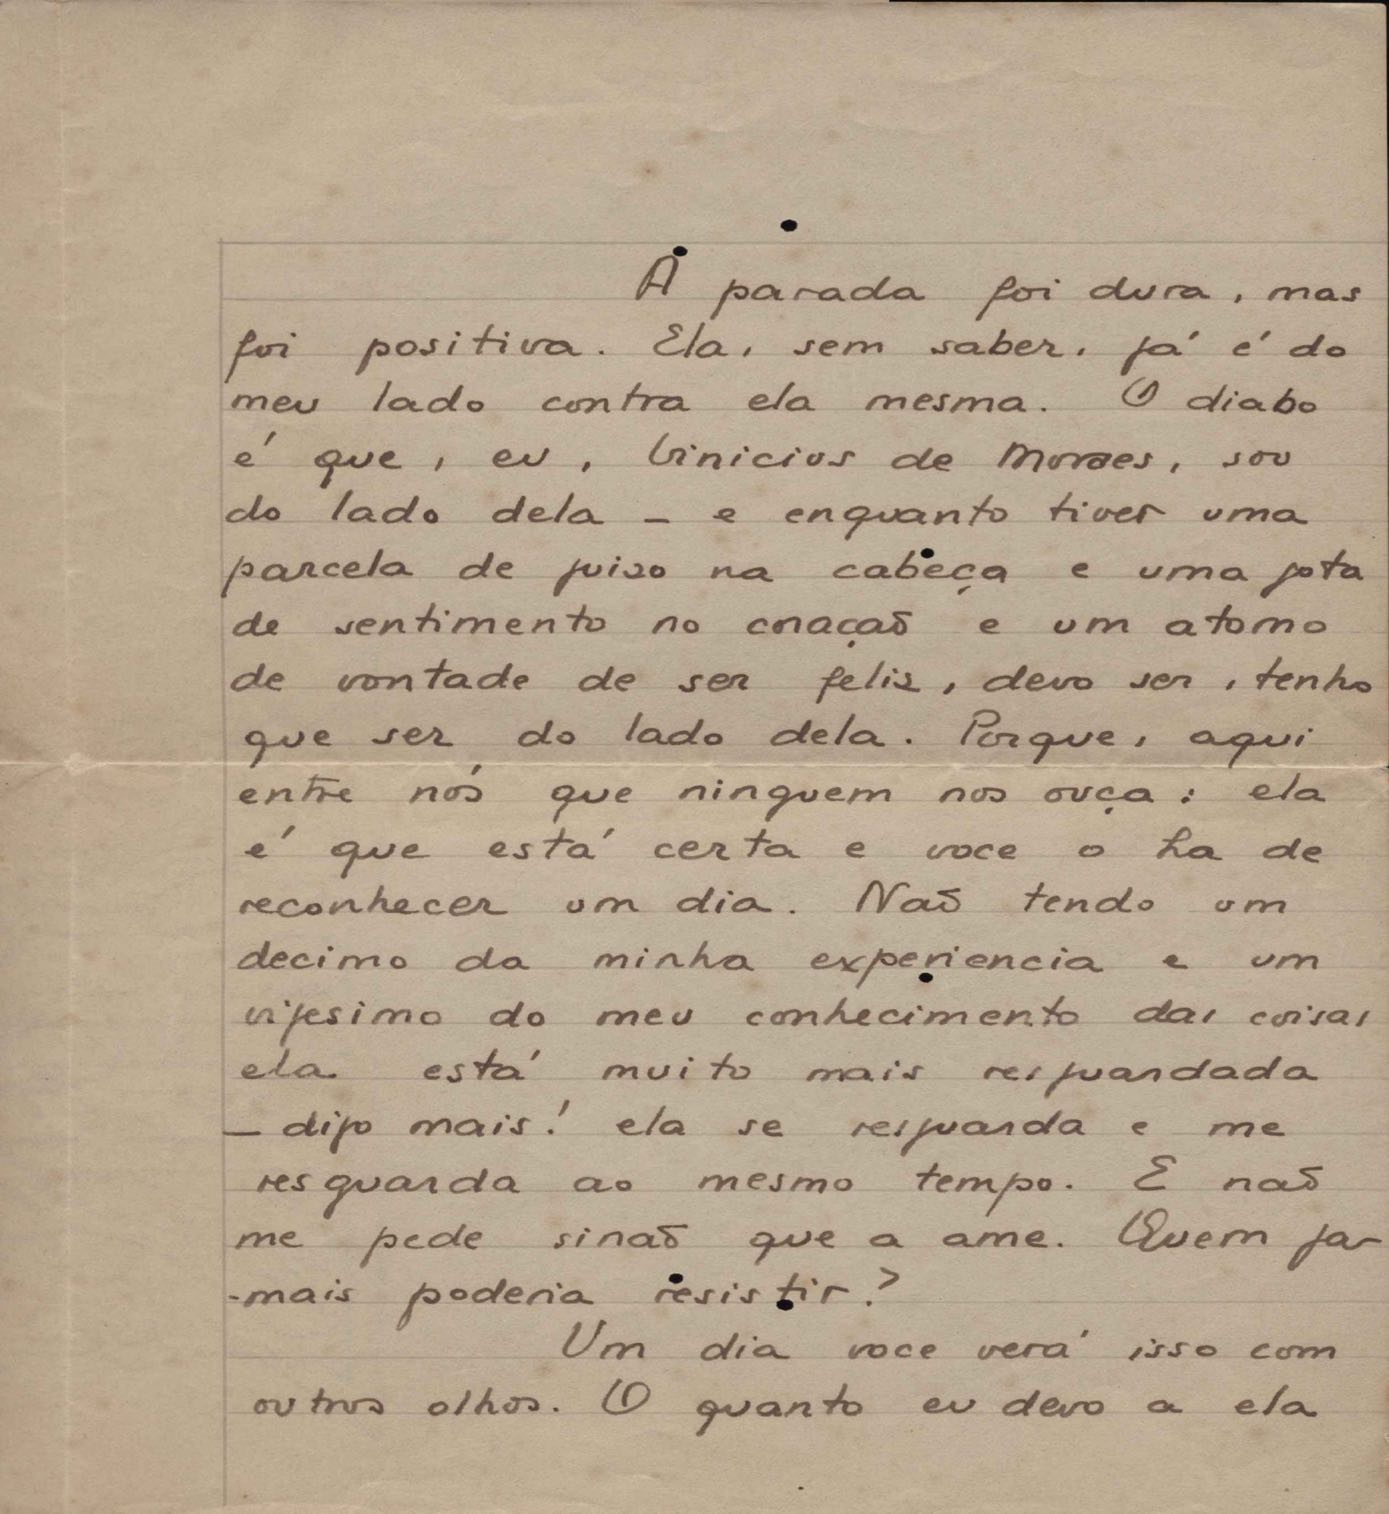 A parada foi dura, mas
foi positiva. Ela, sem saber, já é do
meu lado contra ela mesma. O diabo
é que, eu, Vinicius de Moraes, sou
do lado dela – e enquanto tiver uma
parcela de juizo na cabeça e uma gota
de sentimento no coraçaõ e um atomo
de vontade de ser feliz, devo ser, tenho
que ser do lado dela. Porque, aqui
entre nós que ninguem nos ouça: ela
é que está certa e voce o ha de
reconhecer um dia. Naõ tendo um
decimo da minha experiencia e um
vigesimo do meu conhecimento das coisas
ela está muito mais resguardada
– digo mais! ela se resguarda e me
resguarda ao mesmo tempo. E naõ
me pede sinaõ que a ame. Quem ja-
-mais poderia resistir?
Um dia voce verá isso com
outros olhos. O quanto eu devo a ela